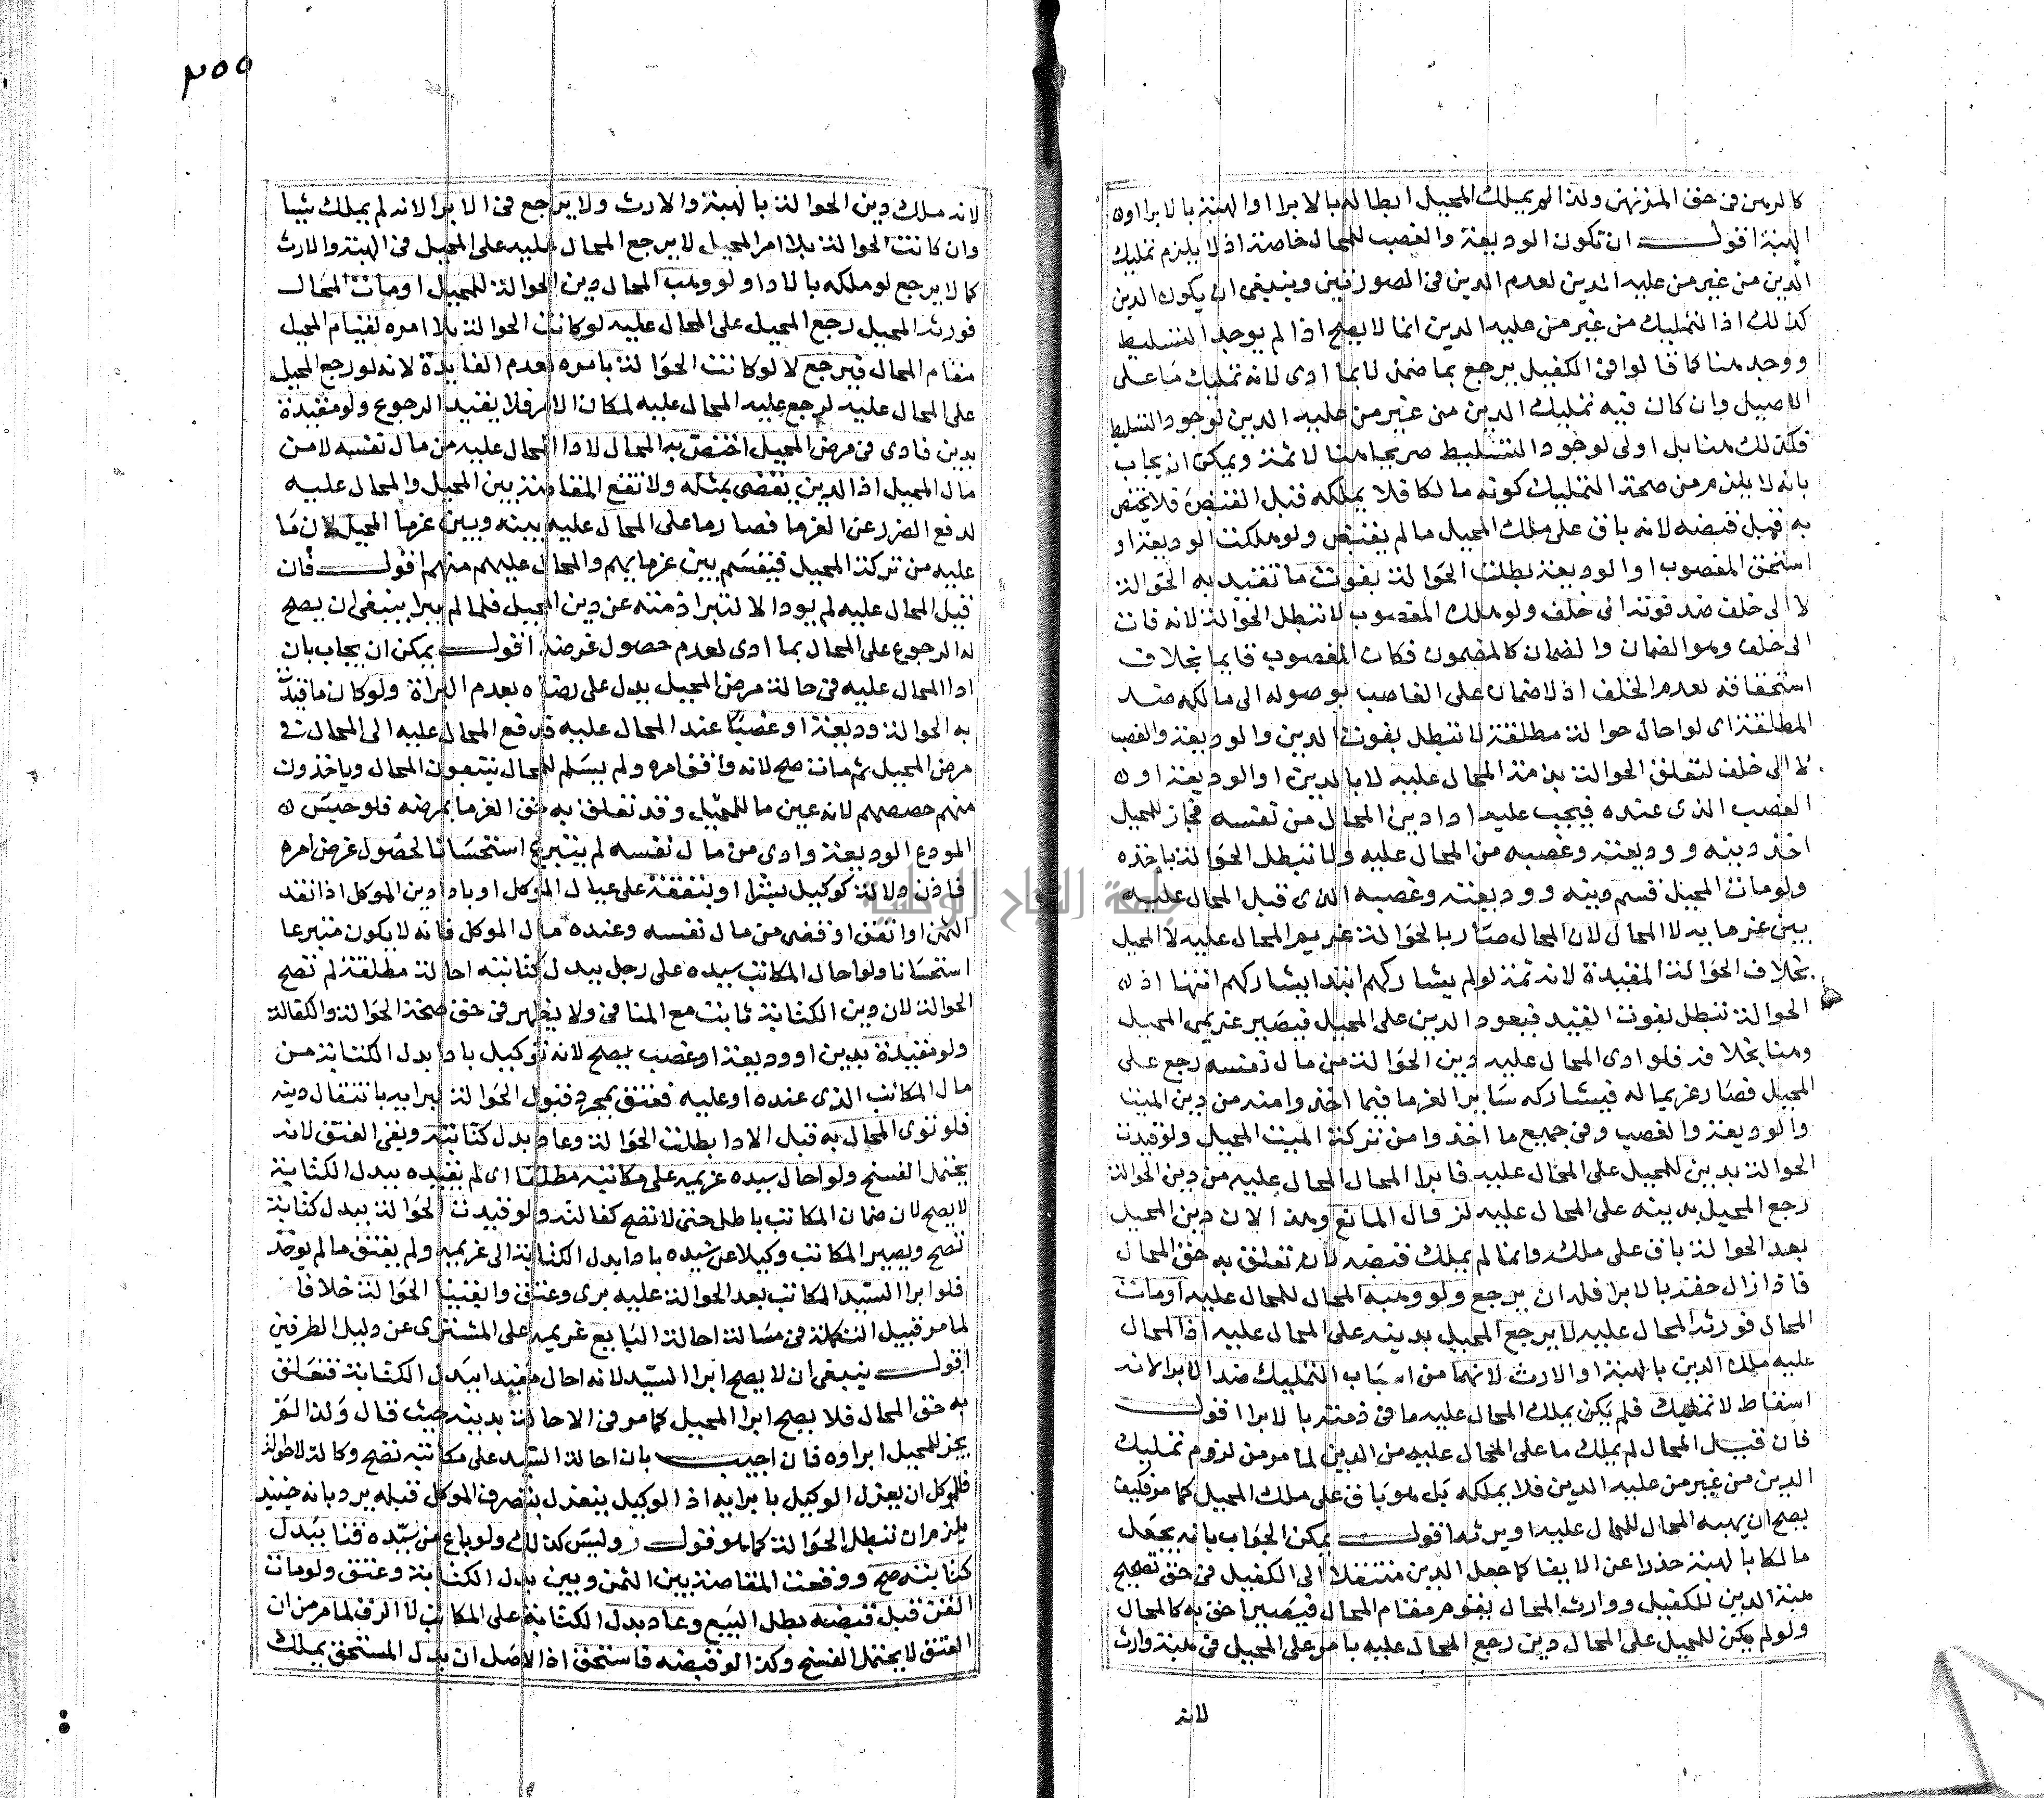 كالرهن في حق المرتهن ولذا لم يملك المحيل ابطاله بالابرا او الهبة بالابرا او
الهبة اقول ان تكون الوديعة والغصب للمحال خاصة اذ لا يلزم تمليك
الدين من غير من عليه الدين لعدم الدين في الصورتين وينبغي ان يكون الدين
كذلك اذ التمليك من غير من عليه الدين انما لا يصح اذا لم يوجد التسليط
ووجد هنا كما قالوا في الكفيل يرجع بما ضمن لا بما ادى لانه تمليك ما على
الاصيل وان كان فيه تمليك الدين من غير من عليه الدين لوجود التسليط
فكذلك هنا بل اولى لوجود التسليط صريحا هنا لا ثمة ويمكن ان يجاب
بانه لا يلزم من صحة التمليك كونه مالكا فلا يملكه قبل القبض فلا يختص
به قبل قبضه لانه باق على ملك المحيل ما لم يقبض ولو هلكت الوديعة او
استحق المغصوب او الوديعة بطلت الحوالة بفوت ما تقيد به الحوالة
لا الى خلف ضد فوته الى خلف ولو هلك المغصوب لا تبطل الحوالة لانه فات
الى خلف وهو الضمان والضمان كالمضمون فكان المغصوب قايما بخلاف
استحقاقه لعدم الخلف اذ لا ضمان على الغاصب لوصوله الى مالكه ضد
المطلقة اي لو احال حوالة مطلقة لا تبطل بفوت الدين والوديعة والغصب
لا الى خلف لتعلق الحوالة بذمة المحال عليه لا بالدين او الوديعة او
الغصب الذي عنده فيجب عليه ادا دين المحال من نفسه فجاز للمحيل
اخذ دينه ووديعته وغصبه من المحال عليه ولا تبطل الحوالة باخذه
ولو مات المحيل قسم دينه ووديعته وغصبه الذي قبل المحال عليه
بين غرمايه لا المحال لان المحال صار بالحوالة غريم المحال عليه لا المحيل
بخلاف الحوالة المقيدة لانه ثمة لو لم يشاركهم ابتدا يشاركهم انتها اذ
الحوالة تبطل بفوت القيد فيعود الدين على المحيل فيصير غريمي المحيل
وهنا بخلافه فلو ادى المحال عليه دين الحوالة من مال نفسه رجع على
المحيل فصار غريما له فيشاركه ساير الغرما فيما اخذوا منه من دين الميت
والوديعة والغصب وفي جميع ما اخذوا من تركة الميت المحيل ولو قيدت
الحوالة بدين للمحيل على المحال عليه فابرا المحال المحال عليه من دين الحوالة
رجع المحيل بدينه على المحال عليه لزوال المانع وهذا لان دين المحيل
بعد الحوالة باق على ملكه وانما لم يملك قبضه لان تعلق به حق المحال
فاذا زال حقه بالابرا فله ان يرجع ولو وهبه المحال للمحال عليه او مات
المحال فورثه المحال عليه لا يرجع المحيل بدينه على المحال عليه اذ المحال
عليه ملك الدين بالهبة او الارث لانهما من اسباب التمليك ضد الابرا لانه
اسقاط لا تمليك فلم يكن يملك المحال عليه ما في ذمته بالابرا اقول
فان قيل المحال لم يملك ما على المحال عليه من الدين لما مر من لزوم تمليك
الدين من غير من عليه الدين فلا يملكه بل هو باق على ملك المحيل كما مر فكيف
يصح ان يهبه المحال للمحال عليه او يرثه اقول يمكن الجواب بانه يجعل
مالكا بالهبة حذرا عن الايفا كما جعل الدين منتقلا الى الكفيل في حق تصحيح
هبة الدين للكفيل ووارث المحال يقوم مقام المحال فيصير احق به كالمحال
ولو لم يكن للمحيل على المحال دين رجع المحال عليه بامر على المحيل في هبة وارث
لانه
٢٥٥
لانه ملك دين الحوالة بالهبة والارث ولا يرجع في الابرا لانه لم يملك شيا
وان كانت الحوالة بلا امر المحيل لا يرجع المحال عليه على المحيل في الهبة والارث
كما لا يرجع لو ملكه بالادا ولو وهب المحال دين الحوالة للمحيل او مات المحال
فورثه المحيل رجع المحيل على المحال عليه لو كانت الحوالة بلا امره لقيام المحيل
مقام المحال فيرجع لا لو كانت الحوالة بامره لعدم الفايدة لانه لو رجع المحيل
على المحال عليه لرجع عليه المحال عليه لمكان الامر فلا يفيد الرجوع ولو مقيدة
بدين فادى في مرض المحيل اختص به المحال لادا المحال عليه من مال نفسه لا من
مال المحيل اذ الدين يقضى بمثله ولا تقع المقاصة بين المحيل والمحال عليه
لدفع الضرر عن الغرما فصار ما على المحال عليه بينه وبين غرما المحيل لان ما
عليه من تركة المحيل فيقسم بين غرمايهم والمحال عليهم منهم اقول فان
قيل المحال عليه لم يود الا لتبرا ذمته عن دين المحيل فلما لم يبرا ينبغي ان يصح
له الرجوع على المحال بما ادى لعدم حصول غرضه اقول يمكن ان يجاب بان
ادا المحال عليه في حالة مرض المحيل يدل على رضاه بعدم البراة ولو كان ما قيدت
به الحوالة وديعة او غصبا عند المحال عليه فدفع المحال عليه الى المحال في
مرض المحيل ثم مات صح لانه وافق امره ولم يسلم للمحال يتبعون المحال وياخذون
منهم حصصهم لانه عين مال المحيل وقد تعلق به حق الغرما بمرضه فلو حبس
المودع الوديعة وادى من مال نفسه لم يتبرع استحسانا لحصول غرض امره
فاذن دلالة كوكيل بشرا او بنفقة على عيال الموكل او بادا دين الموكل اذا نقد
الثمن او انفق او قضى من مال نفسه وعنده مال الموكل فانه لا يكون متبرعا
استحسانا ولو احال المكاتب سيده على رجل ببدل كتابته احالة مطلقة لم تصح
الحوالة لان دين الكتابة ثابت مع المنافي ولا يظهر في حق صحة الحوالة والكفالة
ولو مقيدة بدين او وديعة او غصب يصح لانه توكيل بادا بدل الكتابة من
مال المكاتب الذي عنده او عليه فعتق بمجرد قبول الحوالة لبرايه بانتقال دينه
فلو توى المحال به قبل الادا بطلت الحوالة وعاد بدل كتابته وبقي العتق لانه
يحتمل الفسخ ولو احال سيده غريمه على مكاتبه مطلقا اي لم يقيده ببدل الكتابة
لا يصح لان ضمان المكاتب باطل حتى لا تصح كفالته ولو قيدت الحوالة ببدل كتابة
تصح ويصير المكاتب وكيلا عن سيده بادا بدل الكتابة الى غريمه ولم يعتق ما لم يوخذ
فلو ابرا السيد المكاتب بعد الحوالة عليه برى وعتق والقيت الحوالة خلافا
لما مر قبيل التكملة في مسالة احالة البايع غريمه على المشترى عن دليل الطرفين
اقول ينبغي ان لا يصح ابرا السيد لانه احال مقيدا ببدل الكتابة فتعلق
به حق المحال فلا يصح ابرا المحيل كما مر في الاحالة بدينه حيث قال ولذا لم
يجز للمحيل ابراوه فان اجيب بان احالة السيد على مكاتبه تصح وكالة لا حوالة
فللموكل ان يعزل الوكيل بابرايه اذ الوكيل ينعزل بتصرف الموكل قبله يرد بانه حينيذ
يلزم ان تبطل الحوالة كما هو قول زفر وليس كذلك ولو باع من سيده قنا ببدل
كتابته صح ووقعت المقاصة بين الثمن وبين بدل الكتابة وعتق ولو مات
القن قبل قبضه بطل البيع وعاد بدل الكتابة على المكاتب لا الرق لما مر من ان
العتق لا يحتمل الفسخ وكذا لو قبضه فاستحق اذ الاصل ان بدل المستحق يملك